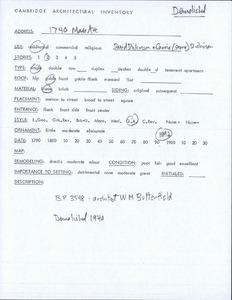 CAMBRIDGE ARCHITECTURAL INVENTORY
Demolished
ADDRESS: 1740 Mass Ave
USE: residential commercial religious
STORIES: 1 2 3 4 5
TYPE: single double row duplex double d tenement apartment
ROOF: hip gable front gable flank mansard flat
MATERIAL: brick SIDING: original subsequent
PLACEMENT: narrow to street broad to street square
ENTRANCE: flank front side front center
ORNAMENT: little moderate elaborate
DATE: 1790 1800 10 20 30 40 50 60 70 80 90 1900 10 20 30
MAP:
REMODELING: drastic moderate minor CONDITION: poor fair good excellent
IMPORTANCE TO SETTING: detrimental none moderate great INITIALED:
DESCRIPTION:
B.P. 3548 - architect W M Butterfield
Demolished 1940